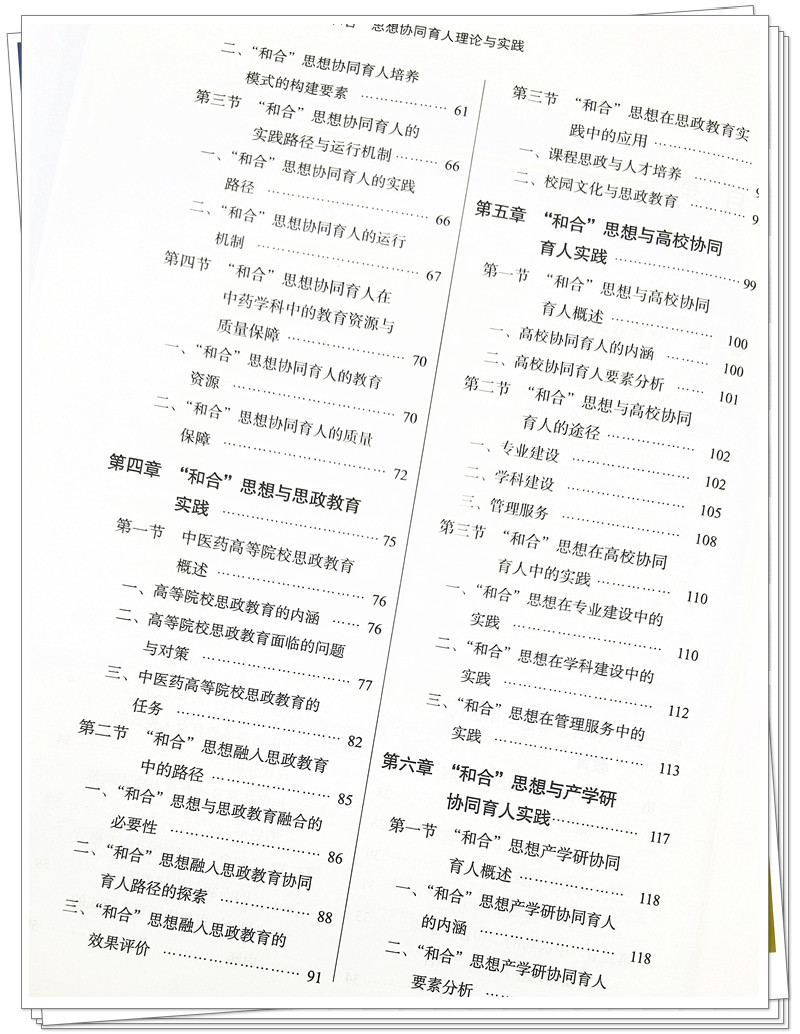 思想协同育人理论与实践
二、“和合”思想协同育人培养
模式的构建要素 ………………… 61
第三节 “和合”思想协同育人的
实践路径与运行机制……… 66
一、“和合”思想协同育人的实践
路径 ………………………………… 66
二、“和合”思想协同育人的运行
机制 ………………………………… 67
第四节 “和合”思想协同育人在
中药学科中的教育资源与
质量保障 ……………………… 70
一、“和合”思想协同育人的教育
资源 ………………………………… 70
二、“和合”思想协同育人的质量
保障 ………………………………… 72
第四章 “和合”思想与思政教育
实践 ………………………………… 75
第一节 中医药高等院校思政教育
概述 ………………………………… 76
一、高等院校思政教育的内涵 …… 76
二、高等院校思政教育面临的问题
与对策 ……………………………… 77
三、中医药高等院校思政教育的
任务 ………………………………… 82
第二节 “和合”思想融入思政教育
中的路径 ………………………… 85
一、“和合”思想与思政教育融合的
必要性 ……………………………… 86
二、“和合”思想融入思政教育协同
育人路径的探索 ………………… 88
三、“和合”思想融入思政教育的
效果评价 ………………………… 91
第三节 “和合”思想在思政教育实
践中的应用 …………………
一、课程思政与人才培养 …………
二、校园文化与思政教育 …………
第五章 “和合”思想与高校协同
育人实践 ………………………… 99
第一节 “和合”思想与高校协同
育人概述 ………………………… 100
一、高校协同育人的内涵 ……… 100
二、高校协同育人要素分析 …… 101
第二节 “和合”思想与高校协同
育人的途径 …………………… 102
一、专业建设 …………………… 102
二、学科建设 …………………… 105
三、管理服务 …………………… 108
第三节 “和合”思想在高校协同
育人中的实践 ………………… 110
一、“和合”思想在专业建设中的
实践 ……………………………… 110
二、“和合”思想在学科建设中的
实践 ……………………………… 112
三、“和合”思想在管理服务中的
实践 ……………………………… 113
第六章 “和合”思想与产学研
协同育人实践………………… 117
第一节 “和合”思想产学研协同
育人概述 ……………………… 118
一、“和合”思想产学研协同育人
的内涵 …………………………… 118
二、“和合”思想产学研协同育人
要素分析 ……